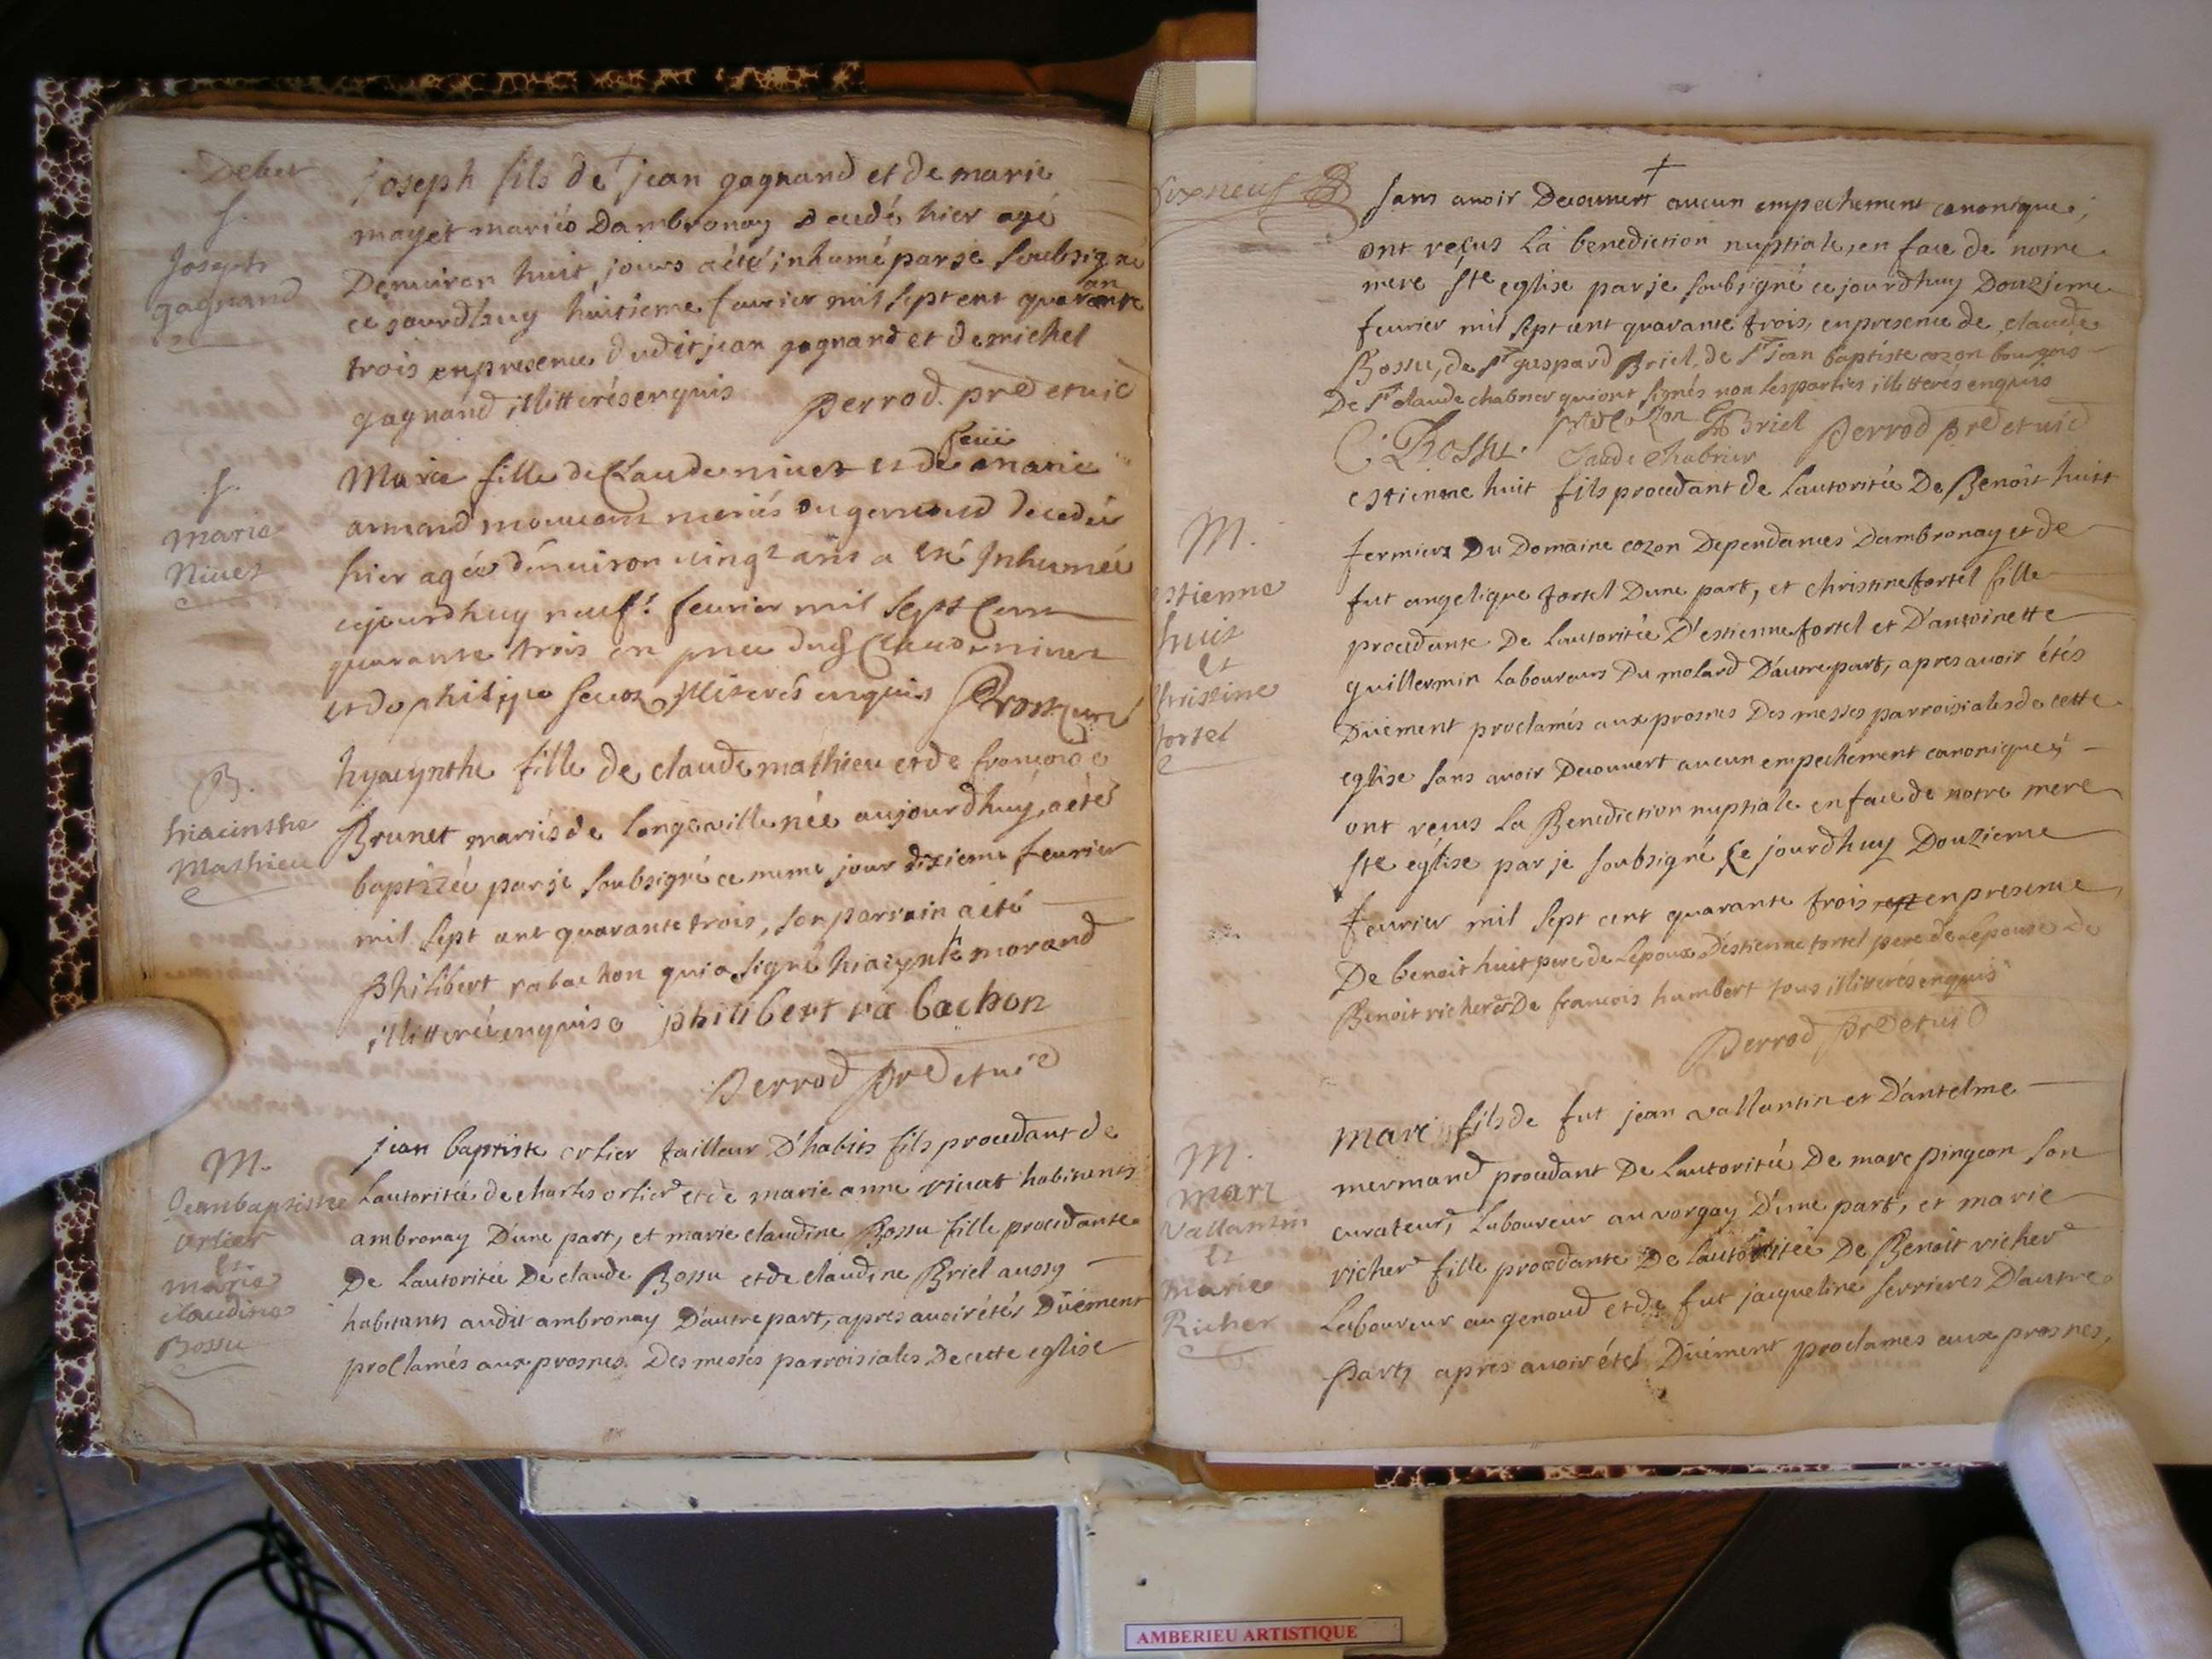 Debet
S.
Joseph
gagnand
joseph fils de jean gagnand et de marie
mayet mariés Dambronay decedé hier agé
Denuiron huit jours aété inhumé par je soubsigné
ce jourdhuy huitieme feurier mil sept cent quarante
trois en presence dudit jean gagnand et de michel
gagnand illitterés enquis perrod. pre et uic
S.
Marie
Niuet
Marie fille de Claude niuet et de feue marie
armand mariés du genoud decedée
hier agée denuiron uingt ans a esté Inhumée
cejourdhuy neuf. feurier mil Sept Cent
quarante trois en pnce dud Claude niuet
et de philipe illiterés enquis curé
B.
hiacinthe
Mathieu
hyacynthe fille de claude mathieu et de francoise
Brunet mariés de longeuille née aujourdhuy, aété
baptizée par je soubsigné ce meme jour dixieme feurier
mil sept cent quarante trois, son parrain aété
philibert rabachon qui a signé hiacynte morand
illitterée enquise philibert ra bachon
perrod pre et uic
M.
Jeanbaptiste
Orlier
et
marie
claudine
Bossu
jean baptiste orlier tailleur D'habits fils procedant de
Lautoritée de charles orlier et de marie anne riuat habitants
ambronay D'une part, et marie claudine Bossu fille procedante
De Lautoritée De claude Bossu et de claudine Briel aussy
habitants audit ambronay D'autre part, apres auoir étés Düement
proclamés aux prosnes Des messes parroisiales De cette eglise
soixneuf
sans auoir Decouuert aucun empechement canonique,
ont reçus La benediction nuptiale, en face de notre
mere Ste eglise par je soubsigné ce jourdhuy Douzieme
feurier mil sept cent quarante trois, en presence de claude
Bossu, de Sr gaspard Briel, de Sr jean baptiste cozon bourgois
De Sr claude chabrier qui ont signés non les parties illitterés enquis
C. Bossu. Cozon G Briel perrod pre et uic
Claude chabrier
M.
estienne
huit
et
christine
tortel
estienne huit fils procedant de Lautoritée De Benoit huit
fermier Du Domaine cozon Dependances Dambronay et de
fut angelique tortel Dune part, et christine tortel fille
procedante De Lautoritée D'estienne tortel et D'antoinette
guillermin Laboureurs Du molard D'autre part, apres auoir étés
Düement proclamés aux prosnes Des messes parroisiales de cette
eglise sans auoir Decouuert aucun empechement canonique,
ont reçus La Benediction nuptiale en face de notre mere
Ste église par je soubsigné Ce jourdhuy Douzieme
feurier mil sept cent quarante trois en presence
De benoit huit pere de Lepoux D'estienne tortel pere de lepouse de
Benoit richerd De francois humbert tous illitterés enquis
perrod pre et uic
M.
Marc
Vallantin
Et
Marie
Richer
marc fils de fut jean vallantin et D'antelme
mermand procedant De Lautoritée De marc pingeon son
curateur, Laboureur au vorgay D'une part, et marie
richerd fille procedante De Lautoritée De Benoit richerd
Laboureur au genoud et de fut jacqueline ferrieres D'autre
part, apres auoir étés Düement proclames aux prosnes,
AMBERIEU ARTISTIQUE